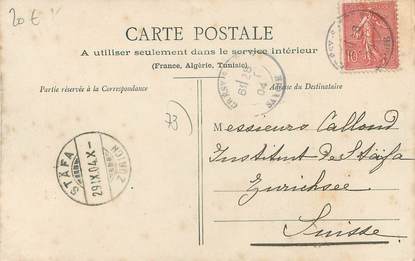 20 €
CARTE POSTALE
A utiliser seulement dans le service intérieur
(France, Algérie, Tunisie)
Partie réservée à la Correspondance
Adresse du Destinataire
73)
Messieurs Calloud
Institut de Stäfa
Zurichsee
Suisse
STÄFA
29.IX.04.X-
(ZÜRICH)